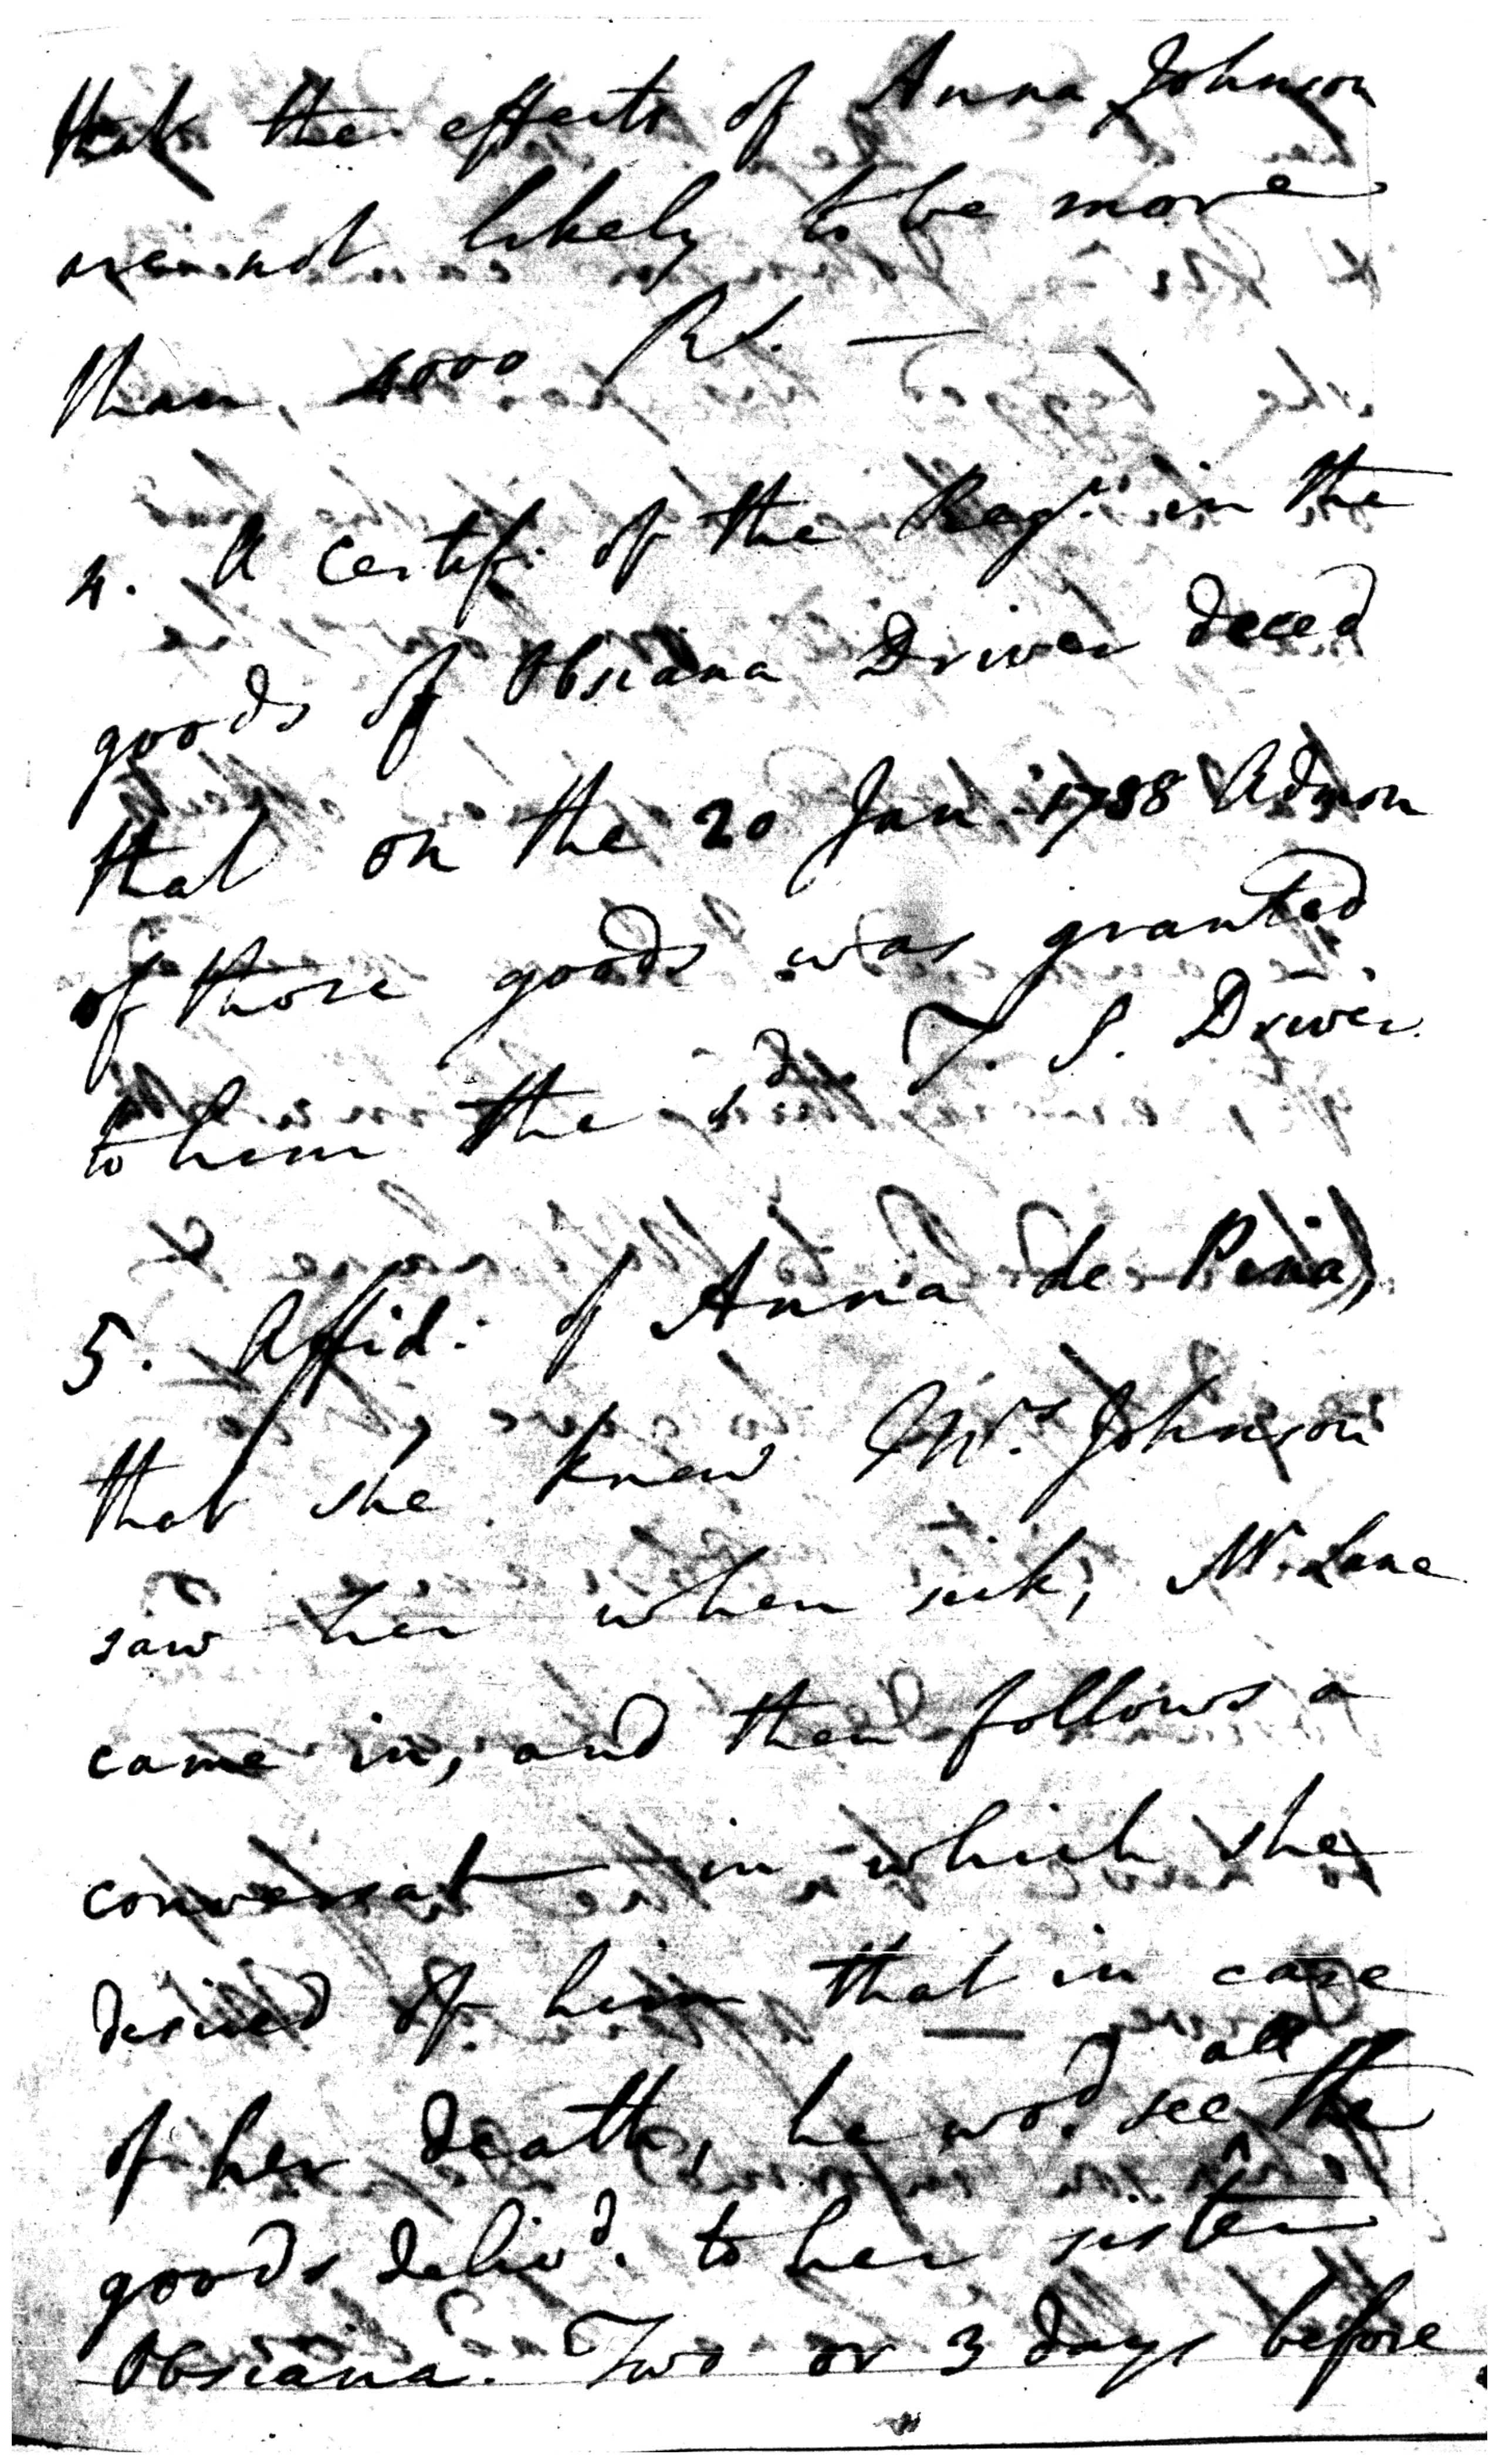 that the effects of Anna Johnson
are not likely to be more
than, 4000 Rs. —
4. A Certif. of the Regr. in the
goods of Obsiana Driver deced
that on the 20 Jan. 1788 Admon
of those goods was granted
to him the sd. T. S. Driver.
5. Affid: of Anna de Pina,
that she knew Mrs. Johnson
saw her when sick, Mr. Lane
came in, and then follows a
conversat— in which she
desired of him that in case
of her death, he wod. see all the
goods delivd. to her sister
Obsiana. Two or 3 days before